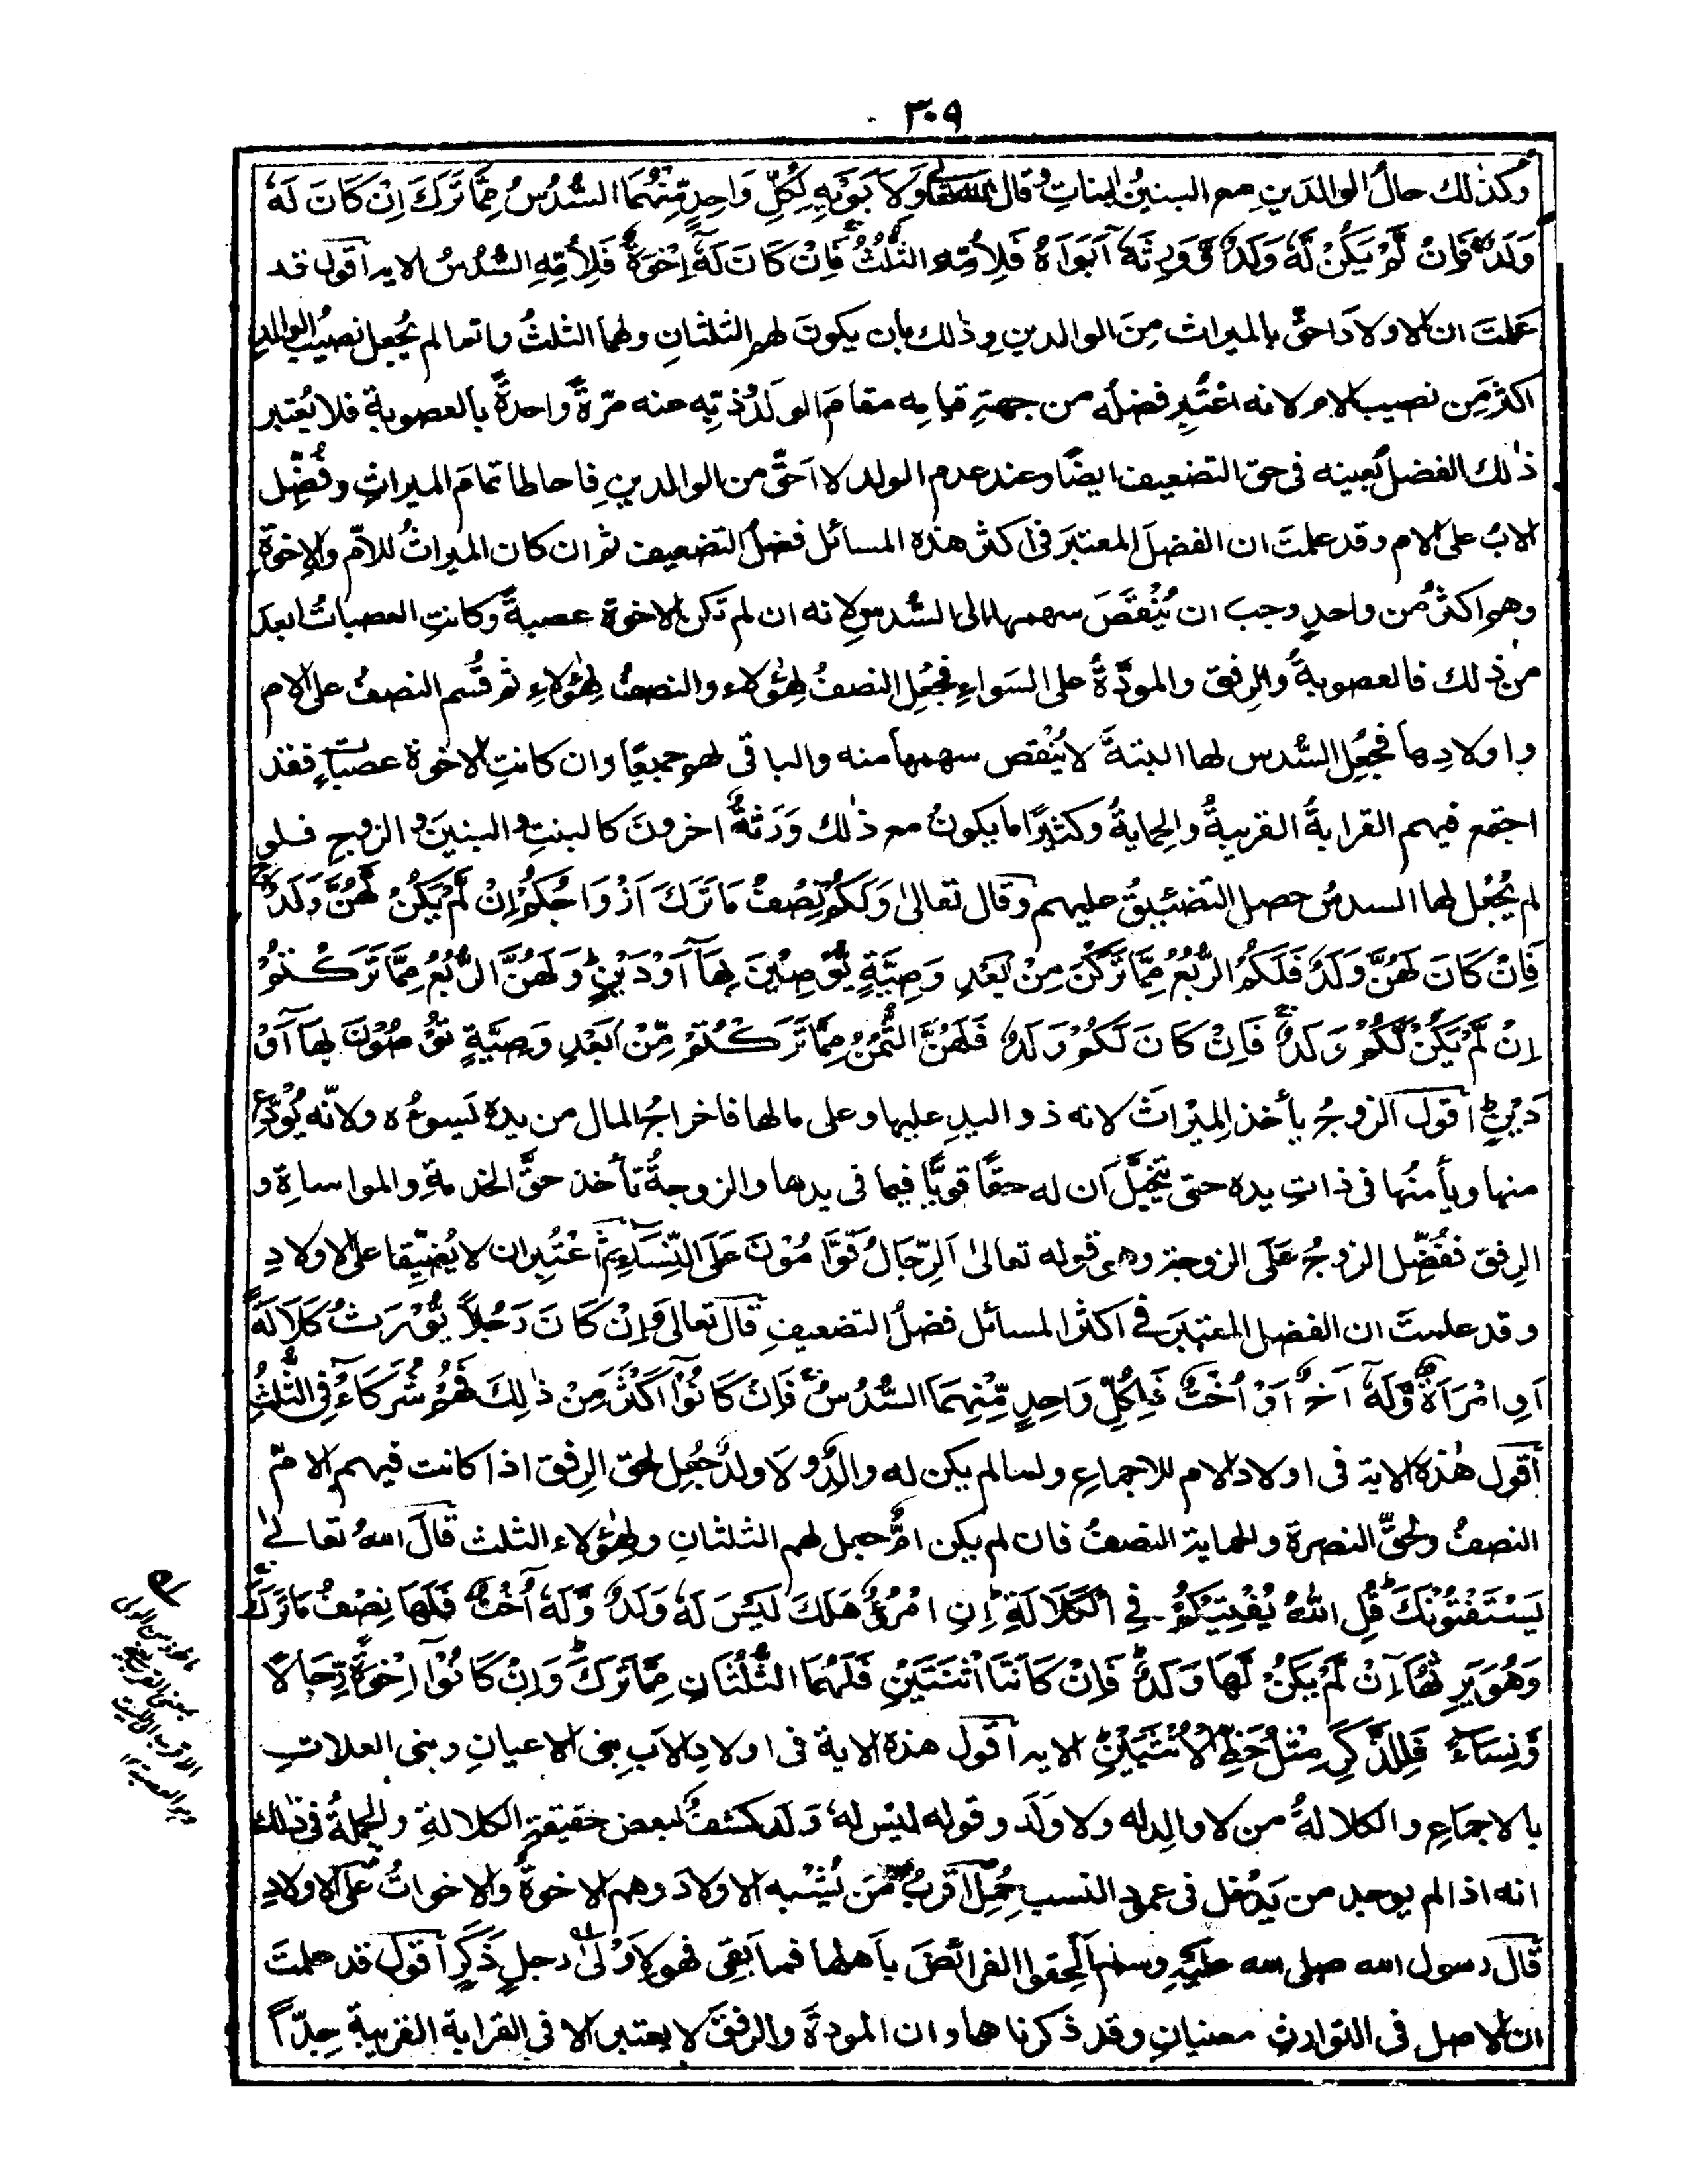 ٣٠٩
وكذٰلك حالُ الوالدَينِ مع البنينَ والبناتِ وقال الله تعالى وَلِاَبَوَيْهِ لِكُلِّ وَاحِدٍ مِّنْهُمَا السُّدُسُ مِمَّا تَرَكَ اِنْ كَانَ لَهٗ
وَلَدٌ فَاِنْ لَّمْ يَكُنْ لَّهٗ وَلَدٌ وَّوَرِثَهٗٓ اَبَوَاهُ فَلِاُمِّهِ الثُّلُثُ فَاِنْ كَانَ لَهٗٓ اِخْوَةٌ فَلِاُمِّهِ السُّدُسُ الايه اقول قد
علمتَ ان الاولادَ احقُّ بالميراث مِنَ الوالدينِ وذٰلك بان يكونَ لهم الثلثانِ ولهما الثلثُ وانما لم يُجعل نصيبُ الوالدِ
اكثرَ مِن نصيب الام لانه اعْتُبِر فضلُه من جهةِ قيامِه مقامَ الولدُ وذبّه عنه مرّةً واحدةً بالعصوبة فلا يُعتبر
ذٰلك الفضلُ بعينِه فى حق التضعيف ايضًا وعند عدم الولد لا احقَّ من الوالدينِ فاحاطا تمامَ الميراثِ وفُضِّل
الابُ على الام وقد علمتَ ان الفضلَ المعتبَرَ فى اكثر هذه المسائل فضلُ التضعيف ثم ان كان الميراثُ للامّ والاِخوةِ
وهم اكثرُ من واحدٍ وجبَ ان يُنْقَصَ سهمها الى السُّدسِ لانه ان لم تكن الاخوة عصبةً وكانتِ العصباتُ ابعدَ
من ذٰلك فالعصوبةُ والرِفق والمودّةُ على السَواءِ فجُعِل النصفُ لهٰؤلاء والنصفُ لهٰؤلاءِ ثم قُسم النصفُ على الام
واولادِها فجُعِل السُّدس لها البتةَ لا يُنْقص سهمها منه والباقى لهم جميعًا وان كانتِ الاخوة عصباتٍ فقد
اجتمع فيهم القرابةُ القريبةُ والحمايةُ وكثيرًا ما يكونُ مع ذٰلك ورَثةٌ اخرونَ كالبنتِ والبنينَ والزوجِ فلو
لم يُجْعل لها السدسُ حصل التضييقُ عليهم وقال تعالىٰ وَلَكُمْ نِصْفُ مَا تَرَكَ اَزْوَاجُكُمْ اِنْ لَّمْ يَكُنْ لَّهُنَّ وَلَدٌ
فَاِنْ كَانَ لَهُنَّ وَلَدٌ فَلَكُمُ الرُّبُعُ مِمَّا تَرَكْنَ مِنْ بَعْدِ وَصِيَّةٍ يُّوْصِيْنَ بِهَآ اَوْ دَيْنٍ وَلَهُنَّ الرُّبُعُ مِمَّا تَرَكْتُمْ
اِنْ لَّمْ يَكُنْ لَّكُمْ وَلَدٌ فَاِنْ كَانَ لَكُمْ وَلَدٌ فَلَهُنَّ الثُّمُنُ مِمَّا تَرَكْتُمْ مِّنْ بَعْدِ وَصِيَّةٍ تُوْصُوْنَ بِهَآ اَوْ
دَيْنٍ اقول الزوجُ يأخذ الميْراثَ لانه ذو اليدِ عليها وعلى مالها فاخراجُ المال من يده يَسوءُه ولانّه يُودِع
منها ويأمنُها فى ذاتِ يده حتى يتخيَّل ان له حقًا قويًّا فيما فى يدها والزوجةُ تأخذ حقَّ الخدمةِ والمواساةِ و
الرِفق ففُضِّل الزوجُ عَلَى الزوجة وهو قوله تعالىٰ اَلرِّجَالُ قَوَّامُوْنَ عَلَى النِّسَآءِ ثم اعْتُبِر ان لا يُضيّقا على الاولادِ
وقد علمتَ ان الفضل المعتبَرَ فى اكثر المسائل فضلُ التضعيفِ قال تعالى وَاِنْ كَانَ رَجُلٌ يُّوْرَثُ كَلٰلَةً
اَوِ امْرَاَةٌ وَّلَهٗٓ اَخٌ اَوْ اُخْتٌ فَلِكُلِّ وَاحِدٍ مِّنْهُمَا السُّدُسُ فَاِنْ كَانُوْٓا اَكْثَرَ مِنْ ذٰلِكَ فَهُمْ شُرَكَآءُ فِى الثُّلُثِ
اقول هٰذه الاية فى اولاد الام للاجماع ولما لم يكن له والدٌ ولا ولدٌ جُعِل لحق الرِفق اذا كانت فيهم الامّ
النصفُ ولحقّ النصرة والحماية النصفُ فان لم يكن امٌّ جعل لهم الثلثانِ ولهٰؤلاء الثلث قالَ اللهُ تعالىٰ
يَسْتَفْتُوْنَكَ قُلِ اللهُ يُفْتِيْكُمْ فِى الْكَلٰلَةِ اِنِ امْرُؤٌ هَلَكَ لَيْسَ لَهٗ وَلَدٌ وَّلَهٗٓ اُخْتٌ فَلَهَا نِصْفُ مَا تَرَكَ
وَهُوَ يَرِثُهَآ اِنْ لَّمْ يَكُنْ لَّهَا وَلَدٌ فَاِنْ كَانَتَا اثْنَتَيْنِ فَلَهُمَا الثُّلُثَانِ مِمَّا تَرَكَ وَاِنْ كَانُوْٓا اِخْوَةً رِّجَالًا
وَّنِسَآءً فَلِلذَّكَرِ مِثْلُ حَظِّ الْاُنْثَيَيْنِ الايه اقول هذه الاية فى اولادِ الابِ بنى الاعيانِ وبنى العلاتِ
بالاجماعِ والكلالةُ من لا والِد له ولا ولَد وقوله ليْس لهٗ ولد كشفٌ لبعض حقيقةِ الكلالةِ والجملةُ فى ذٰلك
انه اذا لم يوجد من يَدْخل فى عمودِ النسب حُمِل اقربُ مَن يُشْبه الاولادَ وهم الاخوةُ والاخواتُ على الاولادِ
قال رسول الله صلى الله عليهِ وسلم اَلحِقوا الفرائضَ بأهلها فما بَقِى فهو لاَوْلىٰ رجلٍ ذَكَرٍ اقول قد علمتَ
ان الاصل فى التوارثِ معنيانِ وقد ذكرناهما وان المودةَ والرفقَ لا يعتبر الا فى القرابة القريبة جِدّاً